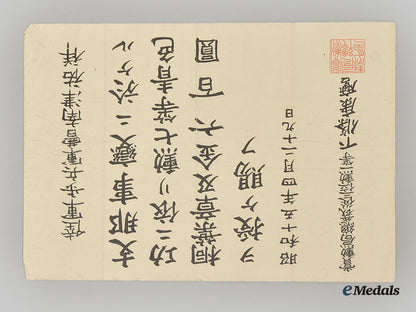 陸軍歩兵軍曹南津祐祥
支那事變ニ於ケル
功ニ依リ勲七等青色
桐葉章及金六百圓
ヲ授ケ賜フ
昭和十五年四月二十九日
賞勲局總裁從三位勲二等下條康麿
eMedals